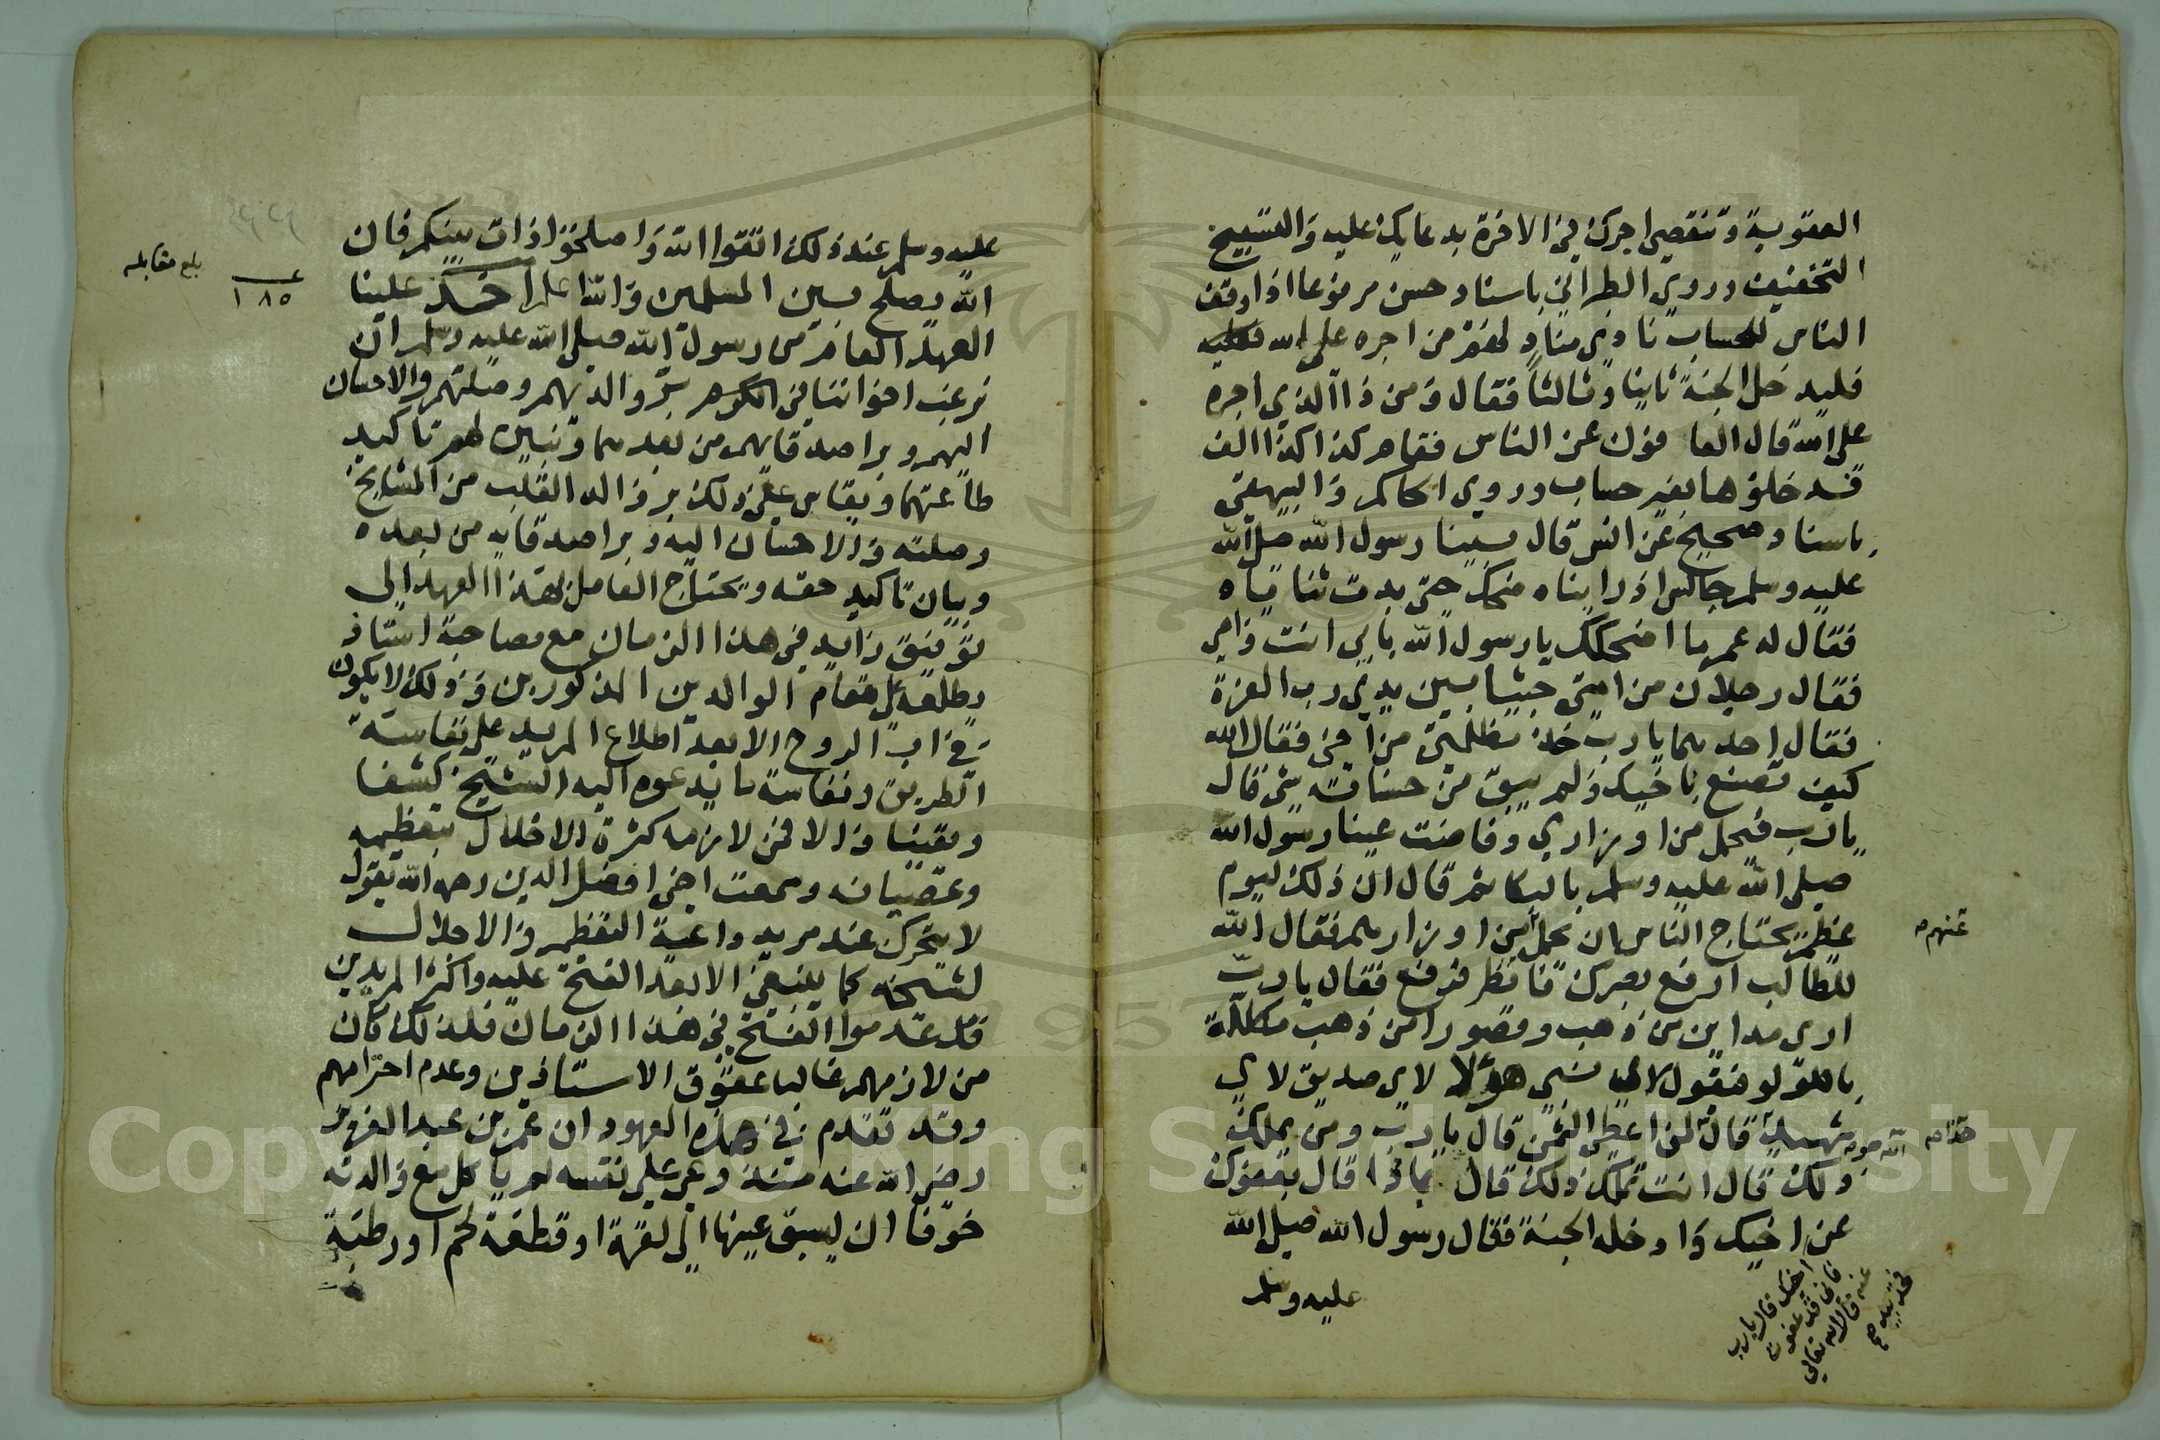 العقوبة وتنقص اجرك في الاخرة بدعائك عليه والتسبيخ
التخفيف وروي الطبراني باسناد حسن مرفوعا اذا وقف
الناس للحساب نادي مناد ليقم من اجره على الله
فليدخل الجنة ثانيا وثالثا فقال ومن ذا الذي اجره
على الله قال العافون عن الناس فقام كذا كذا الف
فدخلوها بغير حساب وروي الحاكم والبيهقي
باسناد صحيح عن انس قال بينا رسول الله صلى الله
عليه وسلم جالس اذ رايناه ضحك حتى بدت ثناياه
فقال له عمر ما اضحكك يا رسول الله بابي انت وامي
فقال رجلان من امتي جثيا بين يدي رب العزة
فقال احدهما يا رب خذ مظلمتي من اخي فقال الله
كيف تصنع باخيك ولم يبق من حسناته شي قال
يارب فيحمل من اوزاري وفاضت عينا رسول الله
صلى الله عليه وسلم بالبكا ثم قال ان ذلك ليوم
عظيم يحتاج الناس ان يحمل من اوزارهم فقال الله
عنهم
للطالب ارفع بصرك فانظر فرفع فقال يا رب
ارى مداين من ذهب وقصورا من ذهب مكللة
باللولو فيقول لاي نبي هولا لاي صديق لاي
شهيد قال لمن اعطى الثمن قال يا رب ومن يملك
ذلك قال انت تملك ذلك قال بماذا قال بعفوك
عن اخيك وادخله الجنة فقال رسول الله صلى الله
اخيك قال يارب
فاني قد عفوت
عنه قال الله تعالى
فخذ بيد
عليه وسلم
عليه وسلم عند ذلك اتقوا الله واصلحوا ذات بينكم فان
الله يصلح بين المسلمين والله اعلم اخذ علينا
بلغ مقابله
١٨٥
العهد العام من رسول الله صلى الله عليه وسلم ان
نرغب اخواننا في بر والديهم وصلتهم والاحسان
اليهم وبر اصدقايهم من بعدهما ونبين لهم تاكيد
طاعتهما ونقاس على ذلك بر والد القلب من المشايخ
وصلته والاحسان اليه وبر اصدقايه من بعده
وبيان تاكيد حقه ويحتاج العامل بهذا العهد الى
توفيق زايد في هذا الزمان مع مصاحبة استاذ
يطلعه على مقام الوالدين المذكورين وذلك لا يكون
في اب الروح الا بعد اطلاع المريد على نفاسة
الطريق ونفاسة ما يدعوه اليه الشيخ كشفا
ويقينا والا فمن لازمه كثرة الاخلال بتعظيمه
وعصيانه وسمعت اخي افضل الدين رحمه الله يقول
لا يتحرك عند مريد داعية التعظيم والاجلال
لشيخه كما ينبغي الا بعد الفتح عليه واكثر المريدين
قد عدموا الفتح في هذا الزمان فلذلك كان
من لازمهم غالبا عقوق الاستاذين وعدم احترامهم
وقد تقدم في هذه العهود ان عمر بن عبد العزيز
رضي الله عنه منذ وعى على نفسه لم ياكل مع والدته
خوفا ان يسبق عينها الى لقمة او قطعة لحم او رطبة
Copyright © King Saud University
1957